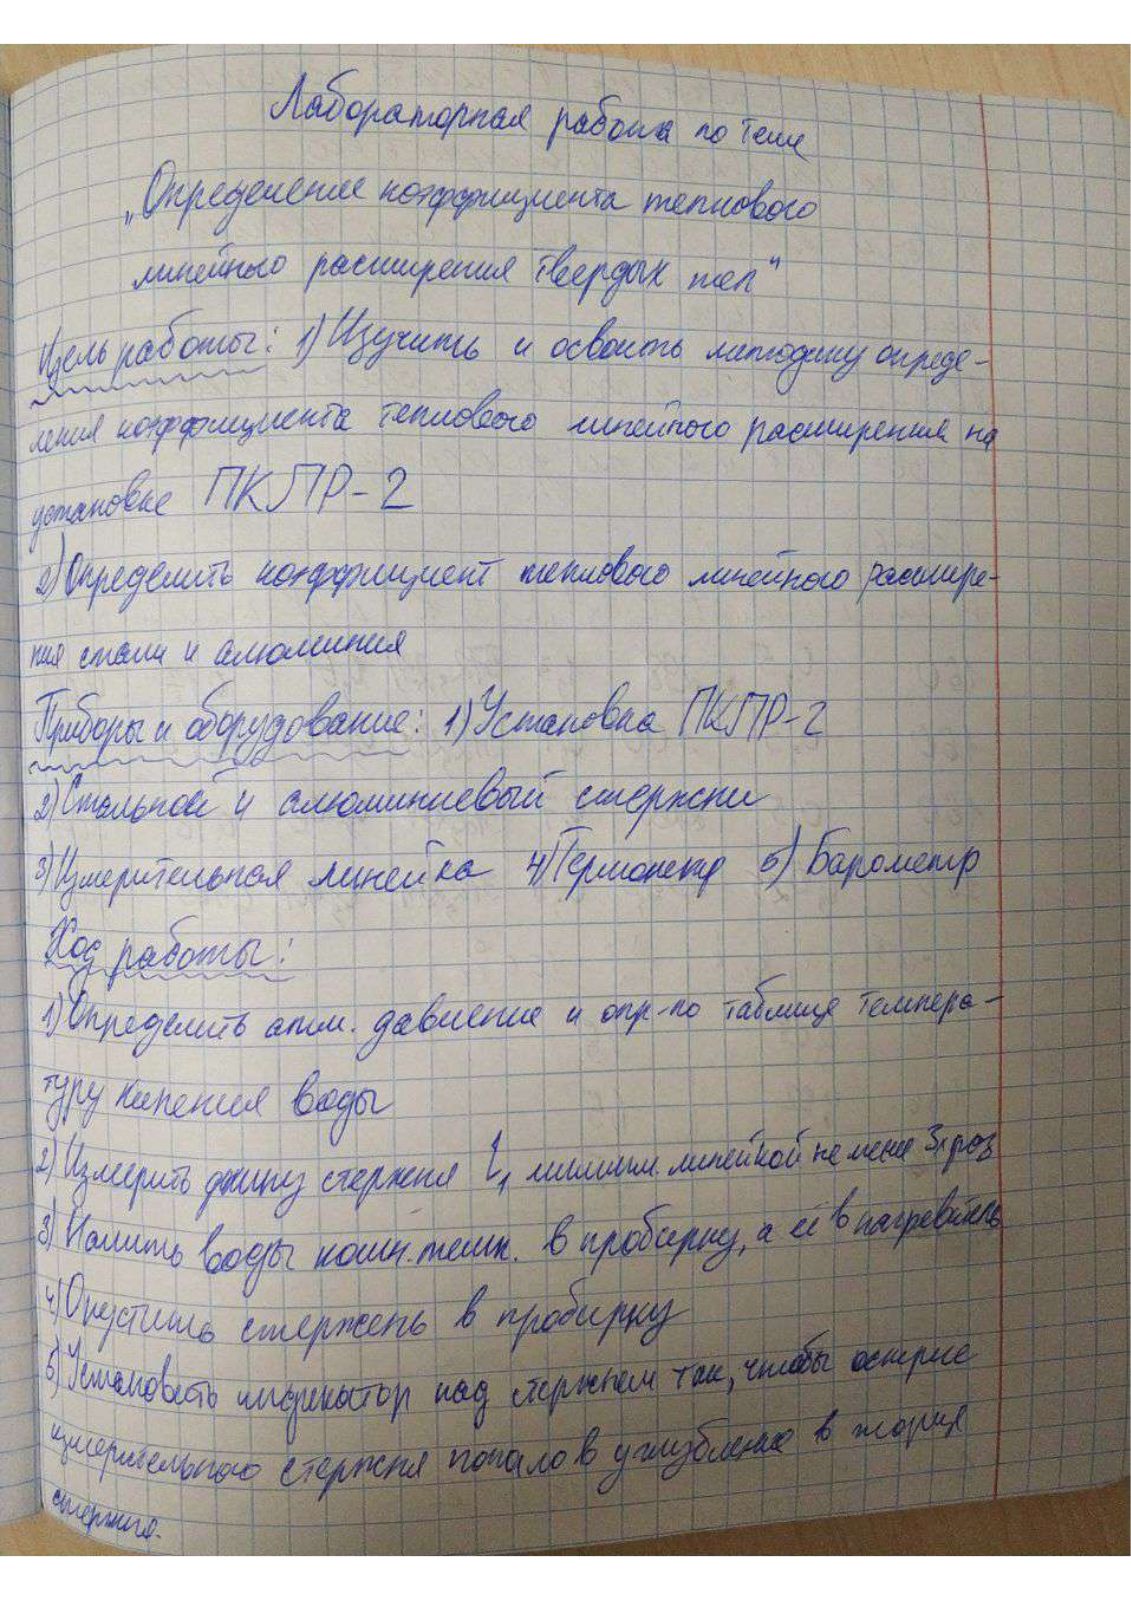 Лабораторная работа по теме
„Определение коэффициента теплового
линейного расширения твердых тел“
Цель работы: 1) Изучить и освоить методику опреде-
ления коэффициента теплового линейного расширения на
установке ПКЛР-2
2) Определить коэффициент теплового линейного расшире-
ния стали и алюминия
Приборы и оборудование: 1) Установка ПКЛР-2
2) Стальной и алюминиевый стержни
3) Измерительная линейка 4) Термометр 5) Барометр
Ход работы:
1) Определить атм. давление и опр-по таблице темпера-
туру кипения воды
2) Измерить длину стержня l₁ миллим. линейкой не менее 3х раз
3) Налить воды комн. темп. в пробирку, а её в нагреватель
4) Опустить стержень в пробирку
5) Установить индикатор над стержнем так, чтобы острие
измерительного стержня попало в углубление в торце
стержня.